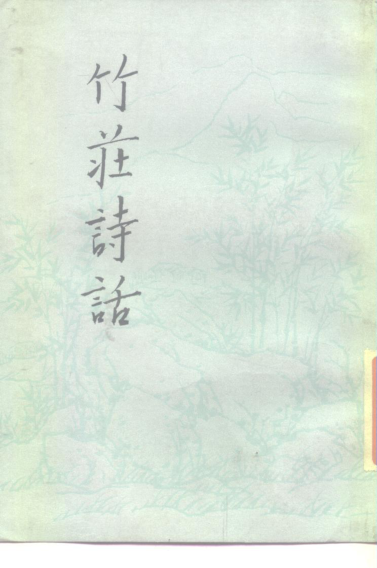 竹莊詩話